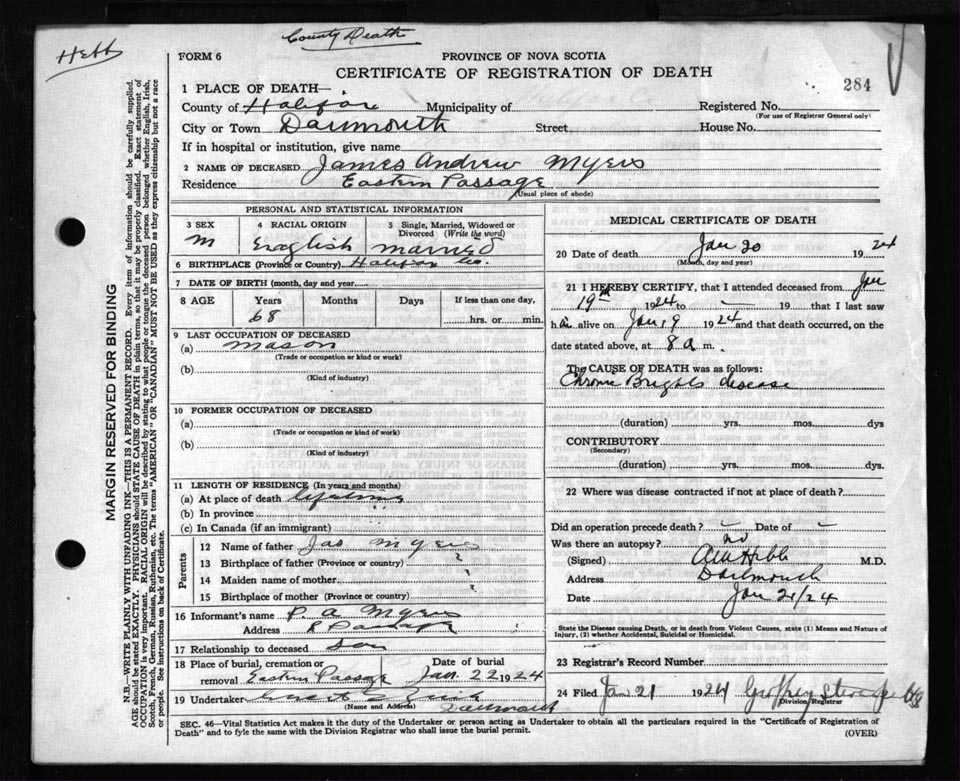 County Death
Hebb
FORM 6
PROVINCE OF NOVA SCOTIA
CERTIFICATE OF REGISTRATION OF DEATH
284
1 PLACE OF DEATH—
County of Halifax Municipality of Registered No.
(For use of Registrar General only)
City or Town Dartmouth Street House No.
If in hospital or institution, give name
2 NAME OF DECEASED James Andrew Myers
Residence Eastern Passage
(Usual place of abode)
PERSONAL AND STATISTICAL INFORMATION
3 SEX 4 RACIAL ORIGIN 5 Single, Married, Widowed or Divorced (Write the word)
M English married
6 BIRTHPLACE (Province or Country) Halifax Co.
7 DATE OF BIRTH (month, day and year)
8 AGE Years Months Days If less than one day,
68 hrs. or min.
9 LAST OCCUPATION OF DECEASED
(a) mason
(Trade or occupation or kind or work)
(b)
(Kind of industry)
10 FORMER OCCUPATION OF DECEASED
(a)
(Trade or occupation or kind of work)
(b)
(Kind of industry)
11 LENGTH OF RESIDENCE (In years and months)
(a) At place of death lifetime
(b) In province
(c) In Canada (if an immigrant)
Parents
12 Name of father Jas Myers
13 Birthplace of father (Province or country) ?
14 Maiden name of mother ?
15 Birthplace of mother (Province or country)
16 Informant's name P. A Myers
Address
17 Relationship to deceased son
18 Place of burial, cremation or Date of burial
removal Eastern Passage Jan. 22 1924
19 Undertaker
(Name and Address) Dartmouth
MEDICAL CERTIFICATE OF DEATH
20 Date of death Jan 20 1924
(Month, day and year)
21 I HEREBY CERTIFY, that I attended deceased from Jan
19th 1924 to — 19 that I last saw
him alive on Jan 19 1924 and that death occurred, on the
date stated above, at 8 a m.
The CAUSE OF DEATH was as follows:
Chronic Brights disease
(duration) yrs. mos. dys
CONTRIBUTORY
(Secondary)
(duration) yrs. mos. dys.
22 Where was disease contracted if not at place of death?
Did an operation precede death? – Date of –
Was there an autopsy? no
(Signed) Hebb M.D.
Address Dartmouth
Date Jan 21/24
State the Disease causing Death, or in death from Violent Causes, state (1) Means and Nature of
Injury, (2) whether Accidental, Suicidal or Homicidal.
23 Registrar's Record Number
24 Filed Jan 21 1924 Geoffrey
Division Registrar
SEC. 46—Vital Statistics Act makes it the duty of the Undertaker or person acting as Undertaker to obtain all the particulars required in the "Certificate of Registration of
Death" and to fyle the same with the Division Registrar who shall issue the burial permit.
(OVER)
MARGIN RESERVED FOR BINDING
N.B.—WRITE PLAINLY WITH UNFADING INK—THIS IS A PERMANENT RECORD. Every item of information should be carefully supplied.
AGE should be stated EXACTLY. PHYSICIANS should STATE CAUSE OF DEATH in plain terms, so that it may be properly classified. Exact statement of
OCCUPATION is very important. RACIAL ORIGIN will be described by stating to what people or tongue the deceased person belonged whether English, Irish,
Scotch, French, German, Russian, Ruthenian, etc. The terms "AMERICAN" OR "CANADIAN" MUST NOT BE USED as they express citizenship but not a race
or people. See instructions on back of Certificate.